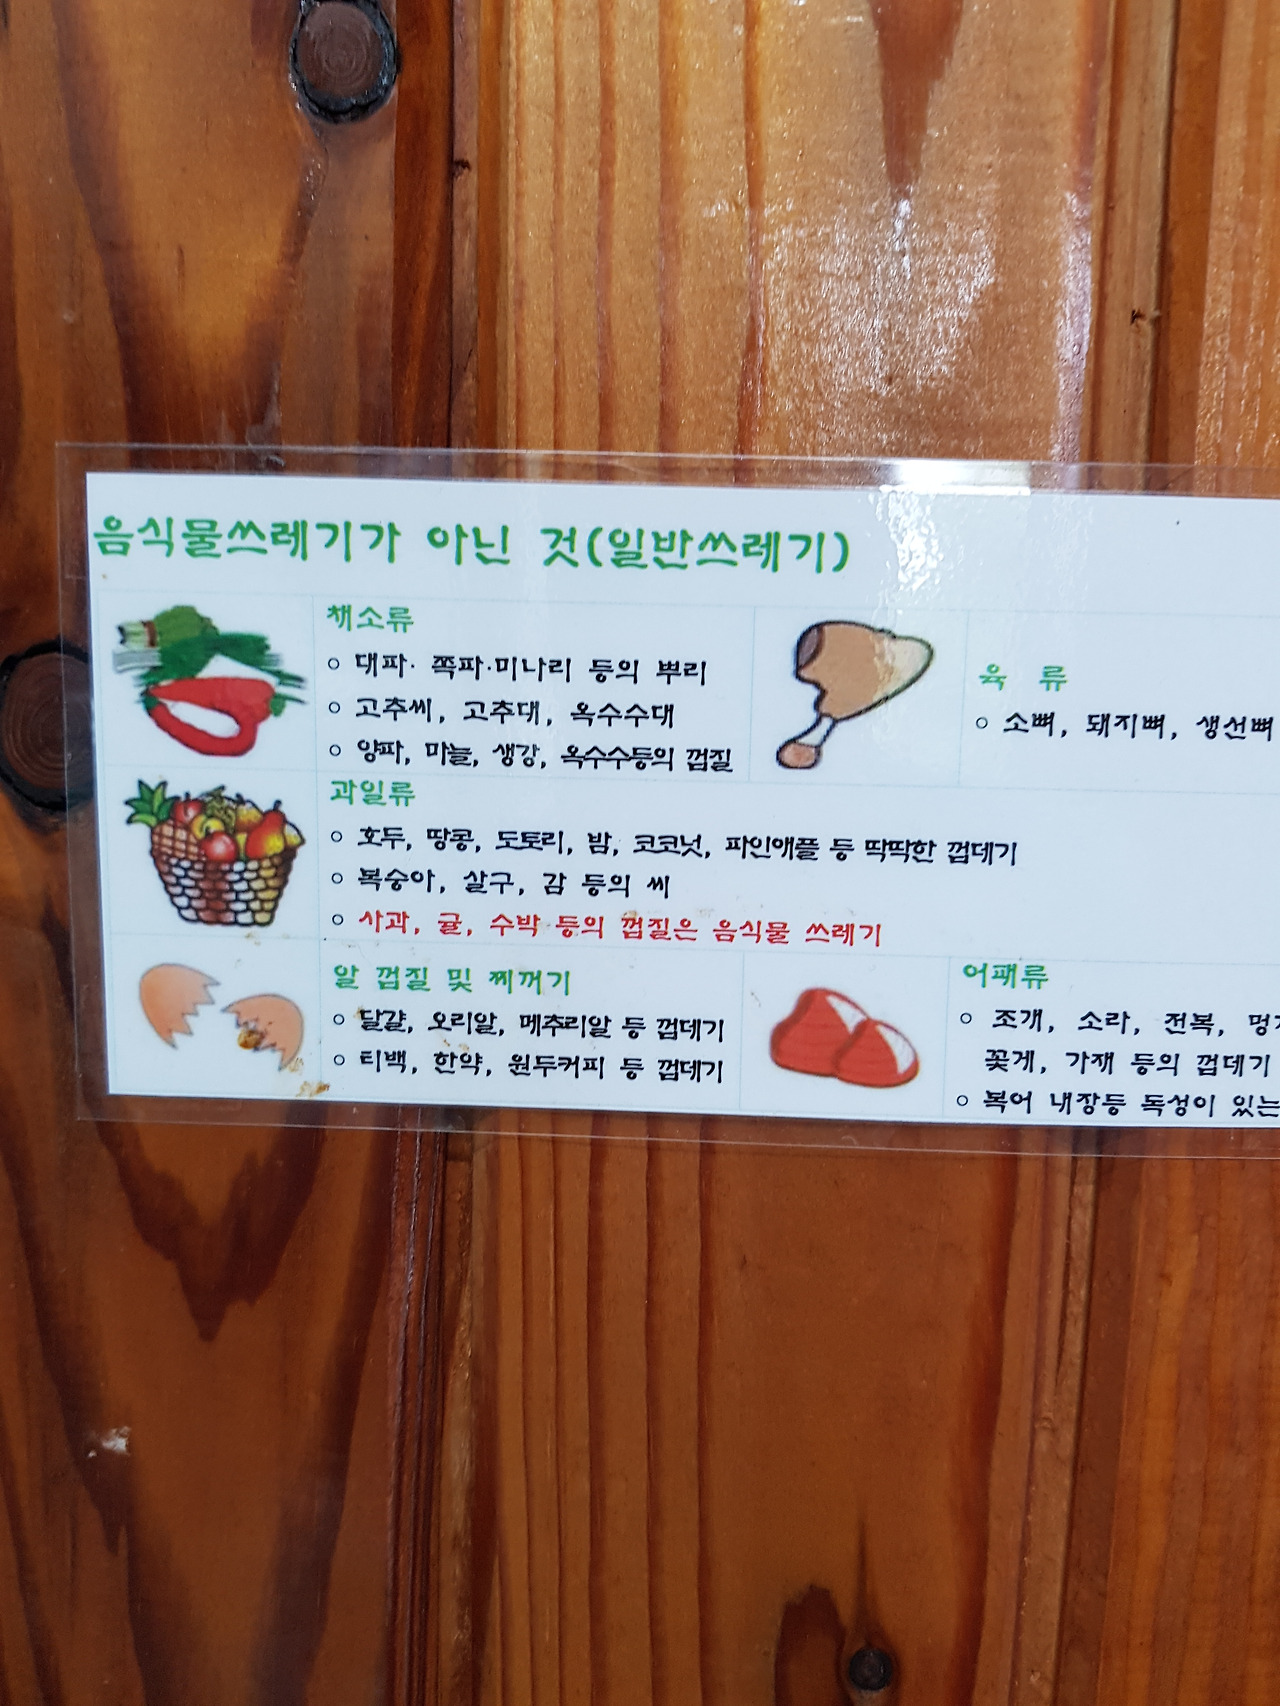 음식물쓰레기가 아닌 것(일반쓰레기)
채소류
○ 대파· 쪽파·미나리 등의 뿌리
○ 고추씨, 고추대, 옥수수대
○ 양파, 마늘, 생강, 옥수수등의 껍질
육 류
○ 소뼈, 돼지뼈, 생선뼈
과일류
○ 호두, 땅콩, 도토리, 밤, 코코넛, 파인애플 등 딱딱한 껍데기
○ 복숭아, 살구, 감 등의 씨
○ 사과, 귤, 수박 등의 껍질은 음식물 쓰레기
알 껍질 및 찌꺼기
○ 달걀, 오리알, 메추리알 등 껍데기
○ 티백, 한약, 원두커피 등 껍데기
어패류
○ 조개, 소라, 전복,
꽃게, 가재 등의 껍데기
○ 복어 내장등 독성이 있는